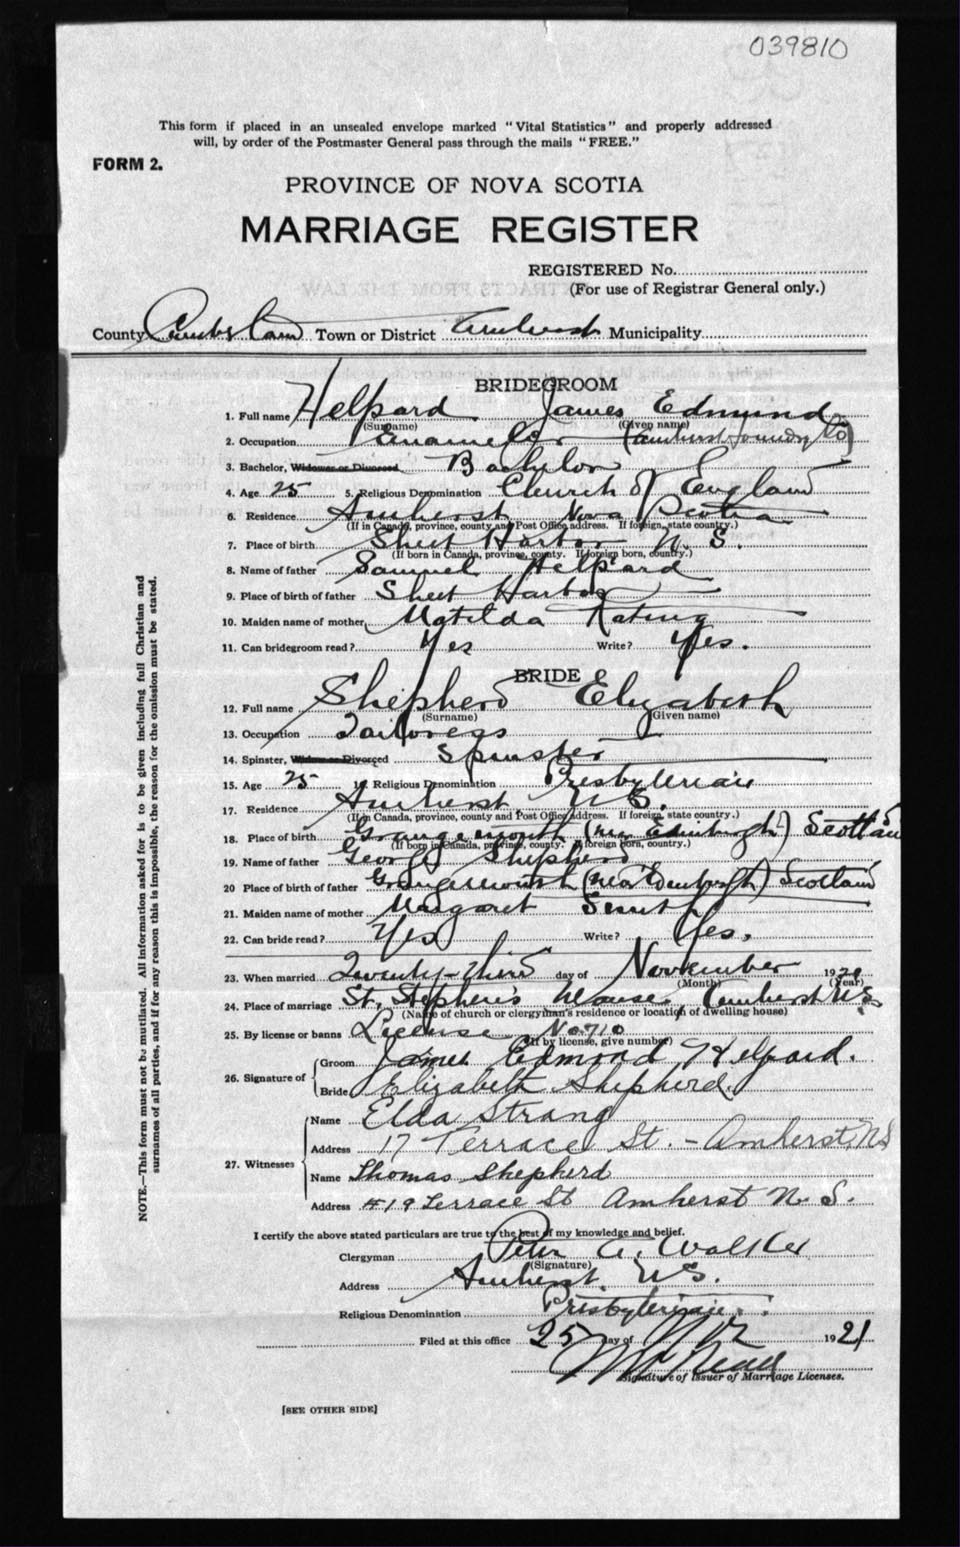 039810
This form if placed in an unsealed envelope marked "Vital Statistics" and properly addressed
will, by order of the Postmaster General pass through the mails "FREE."
FORM 2.
PROVINCE OF NOVA SCOTIA
MARRIAGE REGISTER
REGISTERED No.
(For use of Registrar General only.)
County Cumberland Town or District Amherst Municipality
BRIDEGROOM
1. Full name Helpard James Edmund
(Surname) (Given name)
2. Occupation Enameler (Amherst Foundry Co)
3. Bachelor, Widower or Divorced Bachelor
4. Age 25 5. Religious Denomination Church of England
6. Residence Amherst Nova Scotia
(If in Canada, province, county and Post Office address. If foreign, state country.)
7. Place of birth Sheet Harbor N.S.
(If born in Canada, province, county. If foreign born, country.)
8. Name of father Samuel Helpard
9. Place of birth of father Sheet Harbor
10. Maiden name of mother Matilda
11. Can bridegroom read? Yes Write? Yes.
BRIDE
12. Full name Shepherd Elizabeth
(Surname) (Given name)
13. Occupation Tailoress
14. Spinster, Widow or Divorced Spinster
15. Age 25 16. Religious Denomination Presbyterian
17. Residence Amherst N.S.
(If in Canada, province, county and Post Office address. If foreign, state country.)
18. Place of birth Grangemouth (near Edinburgh) Scotland
(If born in Canada, province, county. If foreign born, country.)
19. Name of father George Shepherd
20 Place of birth of father Grangemouth (near Edinburgh) Scotland
21. Maiden name of mother Margaret
22. Can bride read? Yes Write? Yes.
23. When married Twenty-third day of November 1921
(Month) (Year)
24. Place of marriage St. Stephen's Manse, Amherst N.S.
(Name of church or clergyman's residence or location of dwelling house)
25. By license or banns License No 710
(If by license, give number)
26. Signature of
Groom James Edmond Helpard.
Bride Elizabeth Shepherd.
27. Witnesses
Name Elda Strang
Address 17 Terrace St. - Amherst, N.S
Name Thomas Shepherd
Address 19 Terrace St Amherst N. S.
I certify the above stated particulars are true to the best of my knowledge and belief.
Clergyman Peter A. Walker
(Signature)
Address Amherst. N.S.
Religious Denomination Presbyterian
Filed at this office 25 day of 1921
Signature of Issuer of Marriage Licenses.
[SEE OTHER SIDE]
NOTE.—This form must not be mutilated. All information asked for is to be given including full Christian and
surnames of all parties, and if for any reason this is impossible, the reason for the omission must be stated.